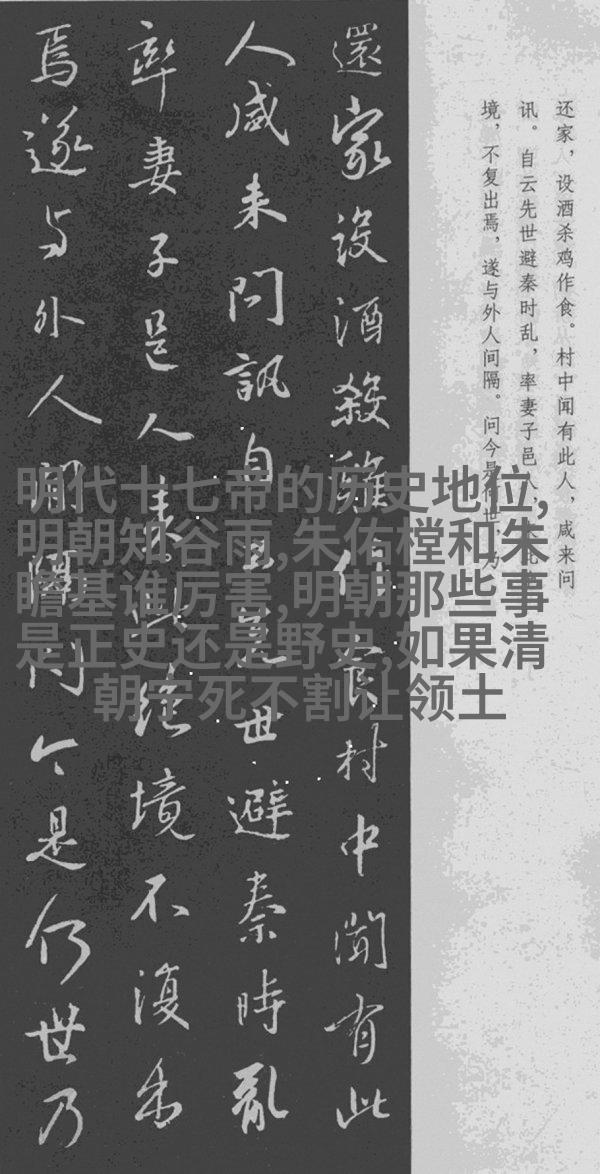 还家，设酒杀鸡作食。村中闻有此人，咸来问
讯。自云先世避秦时乱，率妻子邑人，
境，不复出焉，遂与外人间隔。问今是何世，乃
還家設酒殺雞作食村中聞有此
人咸来問訊自云先世避秦時亂
率妻子邑人来此絶境不復出
焉遂与外人間隔問今是何世乃
明代十七帝的历史地位,
明朝知谷雨,朱佑樘和朱
瞻基谁厉害,明朝那些事
是正史还是野史,如果清
朝宁死不割让领土